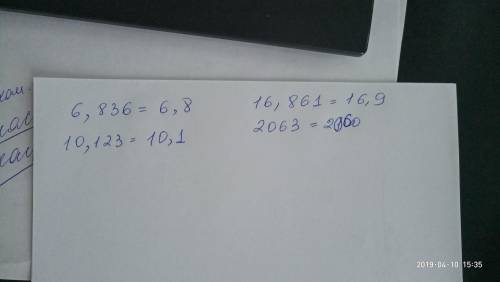 6,836 = 6,8
10,123 = 10,1
16,861 = 16,9
2063 = 2060
2019-04-10 15:35